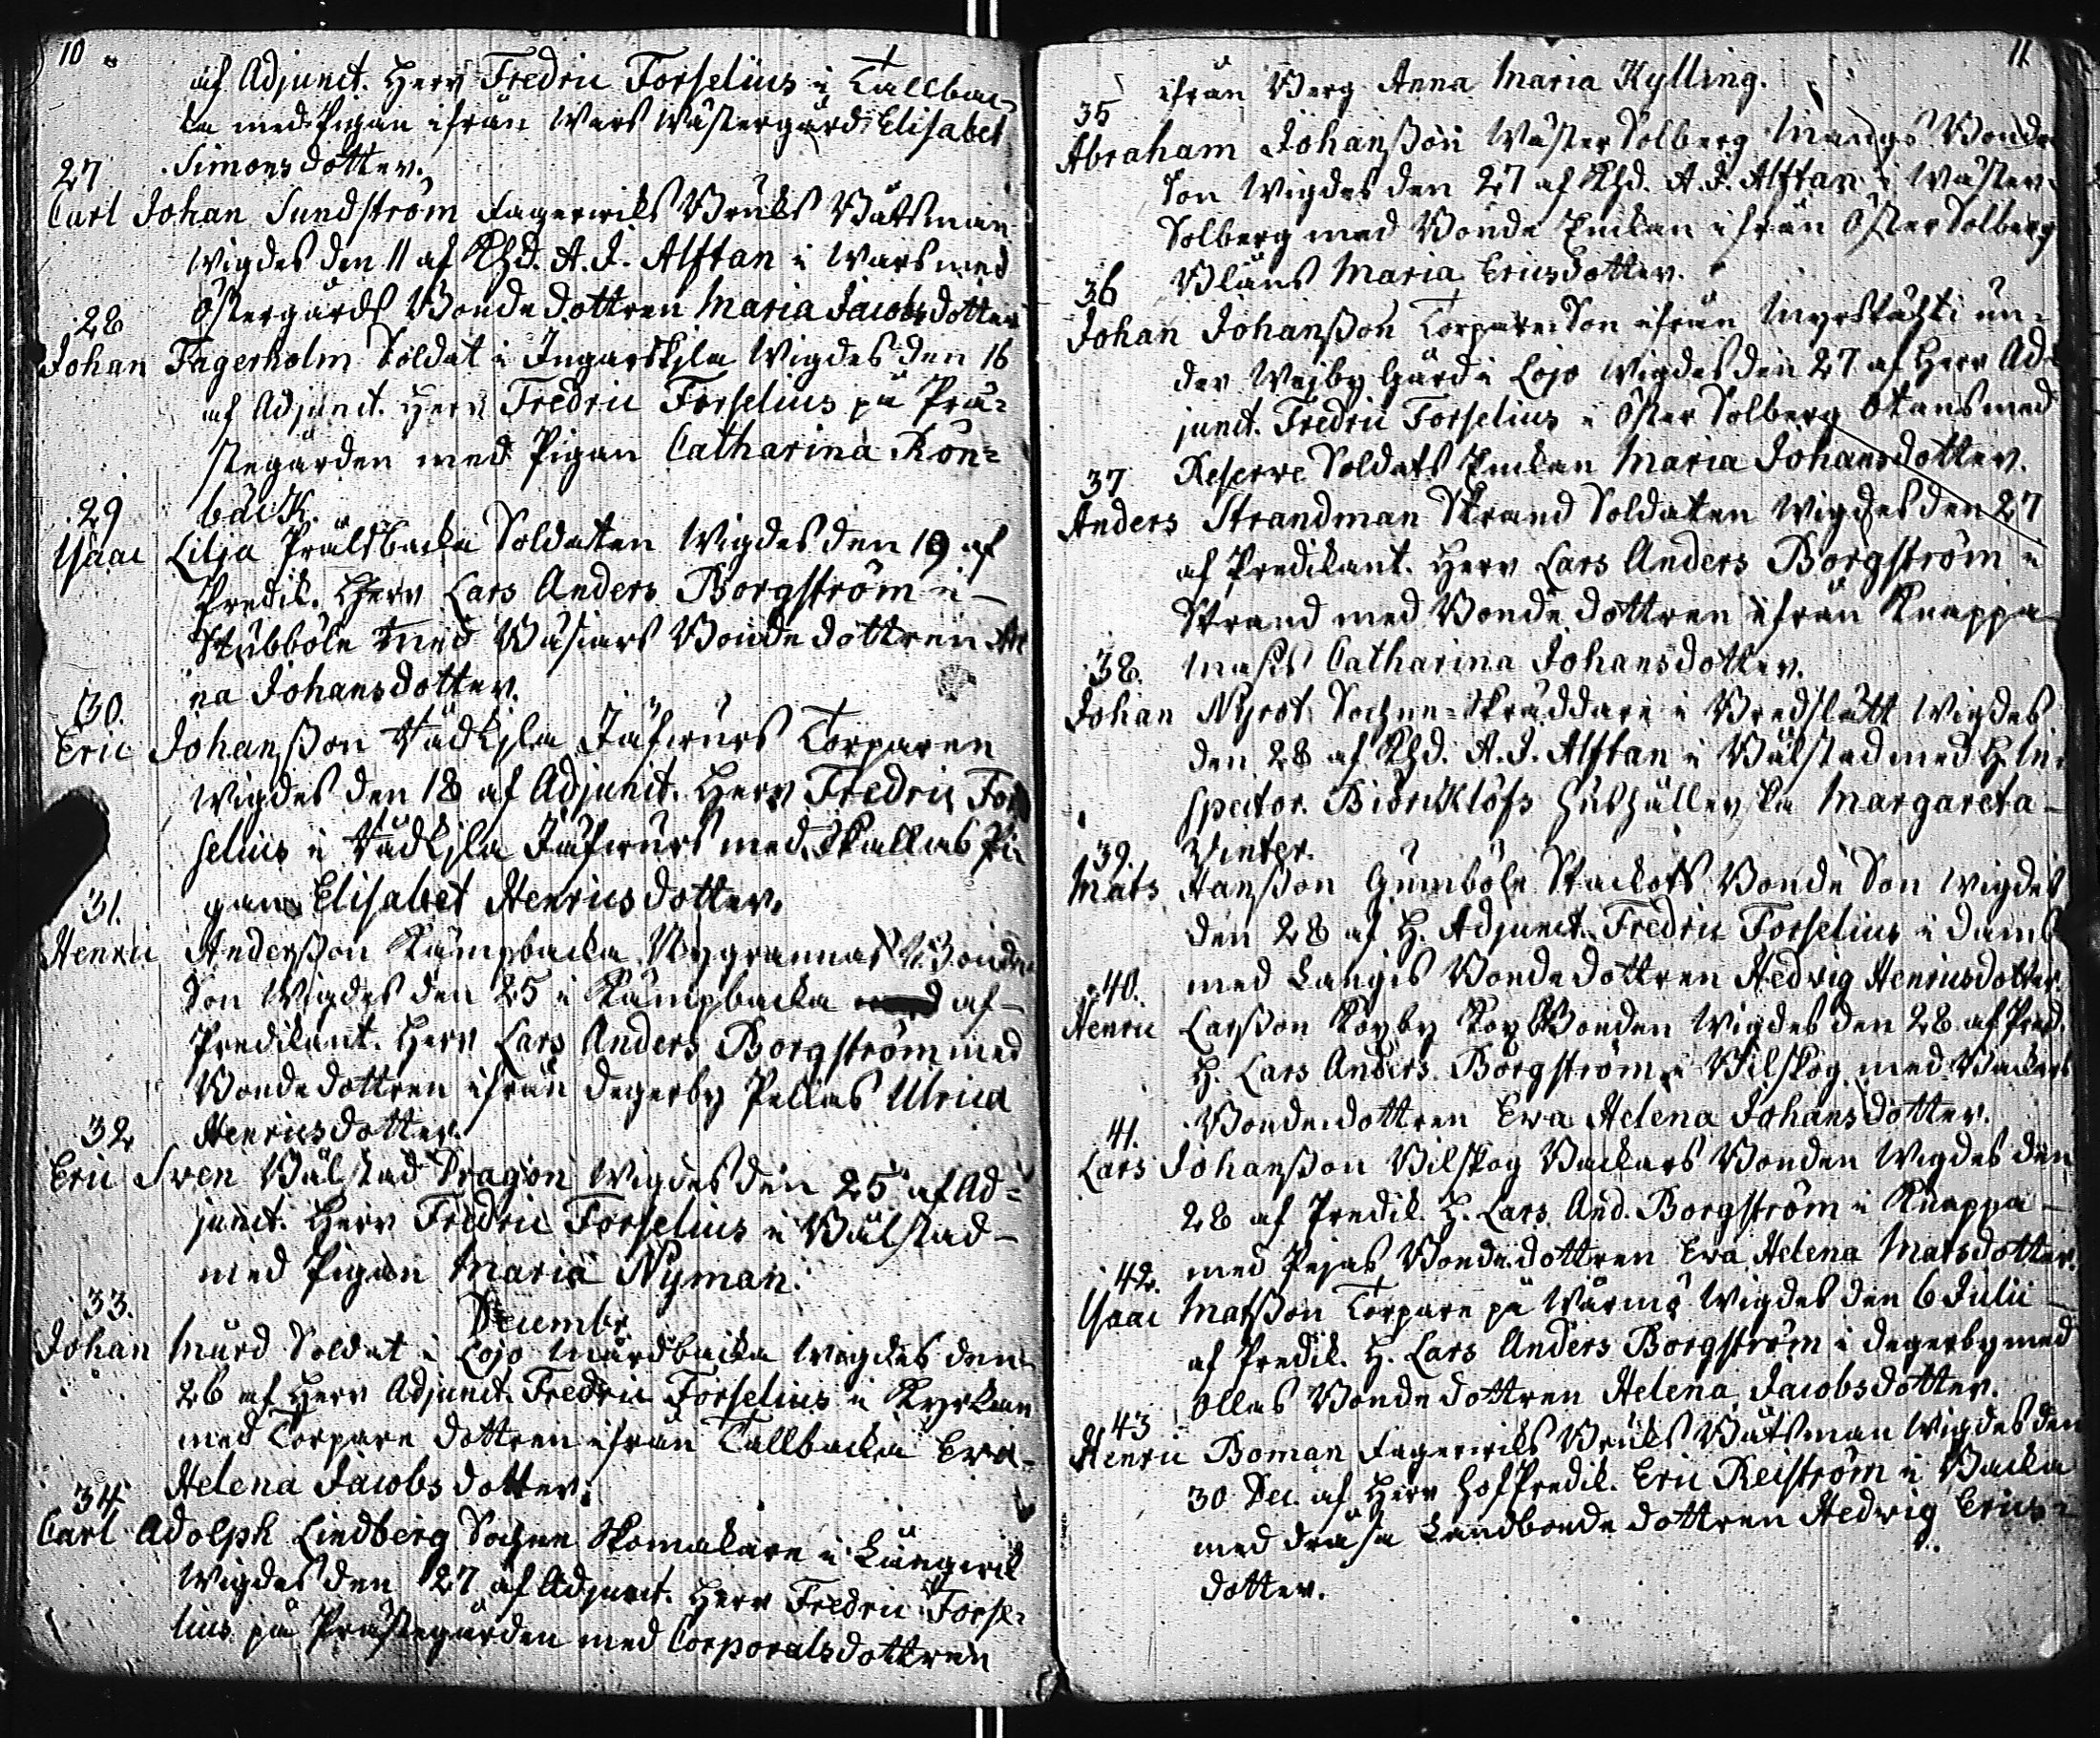 10
af Adjunct. Herr Fredric Forselius i Tallbac-
ka med Pigan ifrån Wars Wästergård Elisabet
Simonsdotter.
27
Carl Johan Sundström Fagerwiks Bruks Båtsman
Wigdes den 11 af Khd. A. J. Alftan i Wars med
Östergårds Bonde dottren Maria Jacobsdotter
28
Johan Fagerholm Soldat i Ingarskjla Wigdes den 16
af Adjunct. Herr Fredric Forselius på Prä-
stegården med Pigan Catharina Rön-
bäck.
29
Isaac Lilja Prälsbacka Soldaten Wigdes den 19 af
Predik. Herr Lars Anders Borgström i
Stubböle med Båsars Bonde dottren An
na Johansdotter.
30.
Eric Johansson Vädkjla Jäfwurs Torparen
Wigdes den 18 af Adjunct. Herr Fredric For
selius i Vädkjla Jäfwurs med Skallas Pi
gan Elisabet Henricsdotter.
31.
Henric Andersson Kämpbacka Nygrannas Bonde
Son Wigdes den 25 i Kämpbacka af
Predikant. Herr Lars Anders Borgström med
Bondedottren ifrån Degerby Pellas Ulrica
Henricsdotter.
32
Eric Sven Bålstad Dragon Wigdes den 25 af Ad-
junct. Herr Fredric Forselius i Bålstad
med Pigan Maria Nyman.
33.
Decembr
Johan Mård Soldat i Lojo Mårdbacka Wigdes den
26 af Herr Adjunct. Fredric Forselius i Kyrkan
med Torpare dottren ifrån Tallbacka Eva
Helena Jacobs dotter.
34
Carl Adolph Lindberg Sochne Skomakare i Långwik
Wigdes den 27 af Adjunct. Herr Fredric Forse-
lius på Prästegården med Corporalsdottren
11
ifrån Berg Anna Maria Kylling.
35
Abraham Johansson Wäster Solberg Mangs Bonde
Son Wigdes den 27 af Khd. A. J. Alftan i Wäster-
Solberg med Bonde Enkan ifrån Öster Solberg
Blåns Maria Ericsdotter.
36
Johan Johansson Torpare Son ifrån Myrskålti un-
der Wejby Gård i Lojo Wigdes den 27 af Herr Ad-
junct. Fredric Forselius i Öster Solberg Otans med
Reserve Soldats Enkan Maria Johansdotter.
37
Anders Strandman Strand Soldaten Wigdes den 27
af Predikant. Herr Lars Anders Borgström i
Strand med Bonde dottren ifrån Knappa
Masis Catharina Johansdotter.
38.
Johan Nyrot Sochne-Skräddare i Bredslätt Wigdes
den 28 af Khd. A. J. Alftan i Bålstad med H. In-
spector Biörcklöfs Hushållerska Margareta
Winter.
39.
Mats Hansson Gumböle Stackots Bonde Son Wigdes
den 28 af H. Adjunct. Fredric Forselius i Damb
med Langis Bonde dottren Hedvig Henricsdotter.
40.
Henric Larsson Koxby Kox Bonden Wigdes den 28 af Pred.
H. Lars Anders Borgström i Bilskog med Backers
Bondedottren Eva Helena Johansdotter.
41.
Lars Johansson Bilskog Backars Bonden Wigdes den
28 af Predik. H. Lars And. Borgström i Knappa
med Pejas Bondedottren Eva Helena Matsdotter.
42.
Isaac Matsson Torpare på Wårmö Wigdes den 6 Julii
af Predik. H. Lars Anders Borgström i Degerby med
Ollas Bonde dottren Helena Jacobsdotter.
43
Henric Boman Fagerwiks Bruks Båtsman Wigdes den
30 Dec. af Herr HofPredik. Eric Reiström i Backa
med Dräsa Landbonde dottren Hedwig Erics-
dotter.